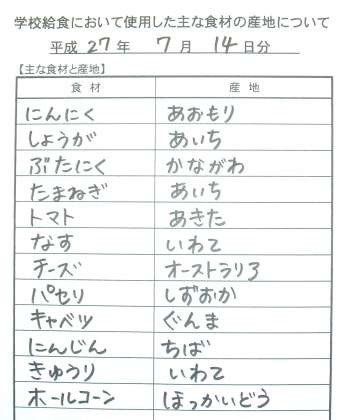 学校給食において使用した主な食材の産地について
平成 27 年 7 月 14 日分
【主な食材と産地】
食材 産地
にんにく あおもり
しょうが あいち
ぶたにく かながわ
たまねぎ あいち
トマト あきた
なす いわて
チーズ オーストラリア
パセリ しずおか
キャベツ ぐんま
にんじん ちば
きゅうり いわて
ホールコーン ほっかいどう